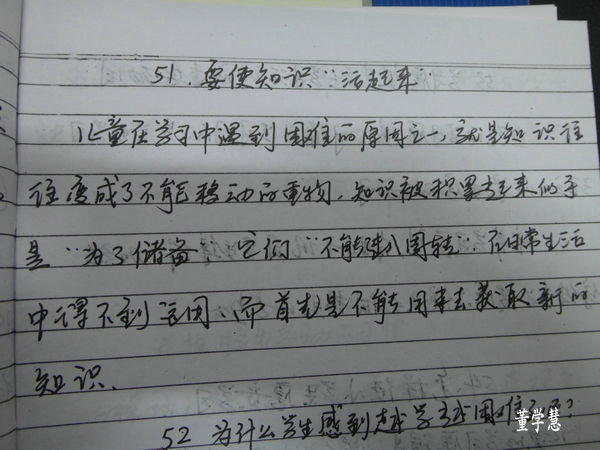 51. 要使知识“活起来”
儿童在学习中遇到困难的原因之一，就是知识往
往变成了不能移动的重物，知识被积累起来似乎
是“为了储备”它们“不能进入周转”，在日常生活
中得不到运用，而首先是不能用来去获取新的
知识．
52 为什么学生感到越学越困难？
董学慧